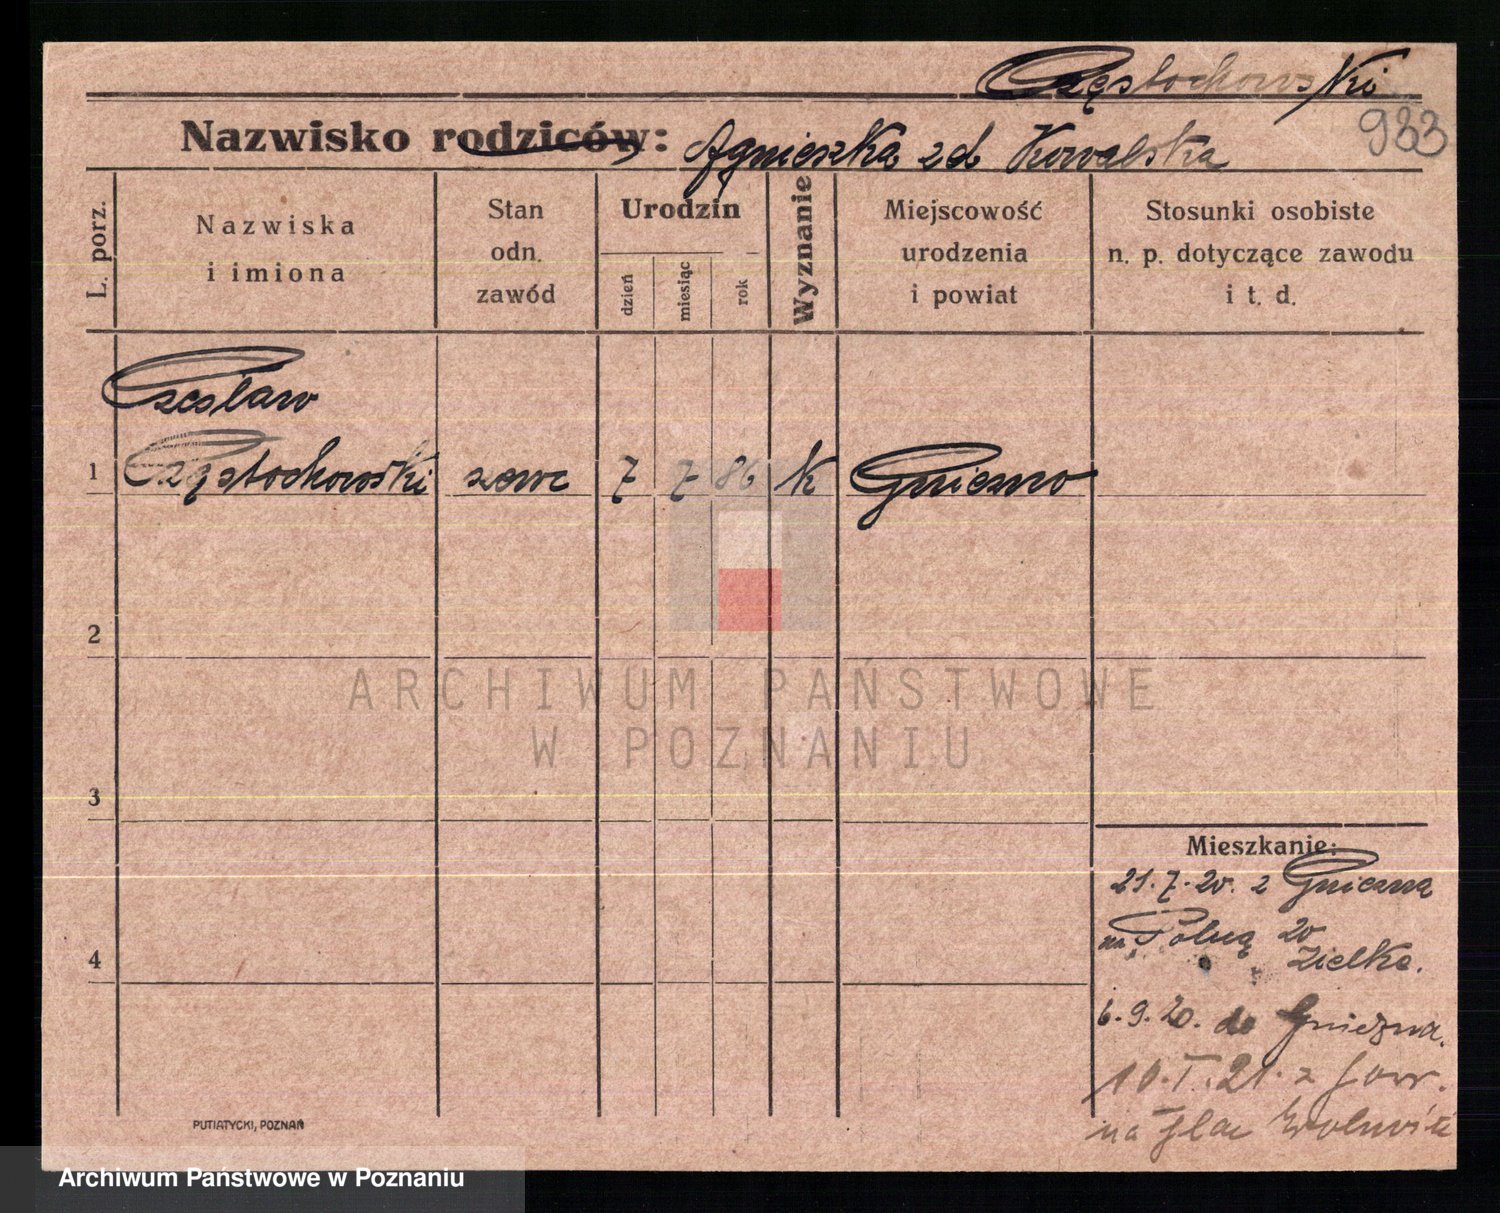 Częstochowski
983
Nazwisko rodziców: Agnieszka zd Kowalska
L. porz.
Nazwiska
i imiona
Stan
odn.
zawód
Urodzin
dzień
miesiąc
rok
Wyznanie
Miejscowość
urodzenia
i powiat
Stosunki osobiste
n. p. dotyczące zawodu
i t. d.
Czesław
1 Częstochowski szewc 7 7 86 K Gniezno
2
ARCHIWUM PAŃSTWOWE
W POZNANIU
3
Mieszkanie:
21.7.20. z Gniezna
na 20
Zielke.
4
6.9.20. do Gniezna.
10.I.21. z
na Plac Wolności
PUTIATYCKI, POZNAŃ
Archiwum Państwowe w Poznaniu